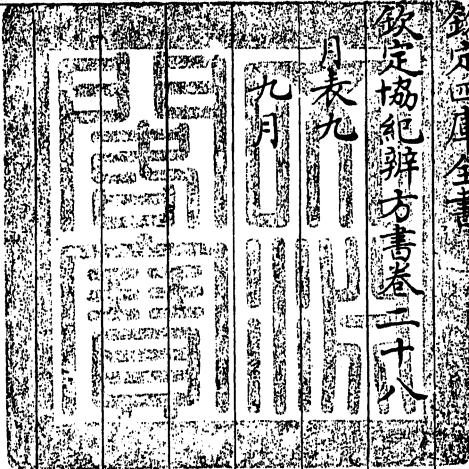 欽定四庫全書
欽定協紀辨方書卷二十八
月表九
九月